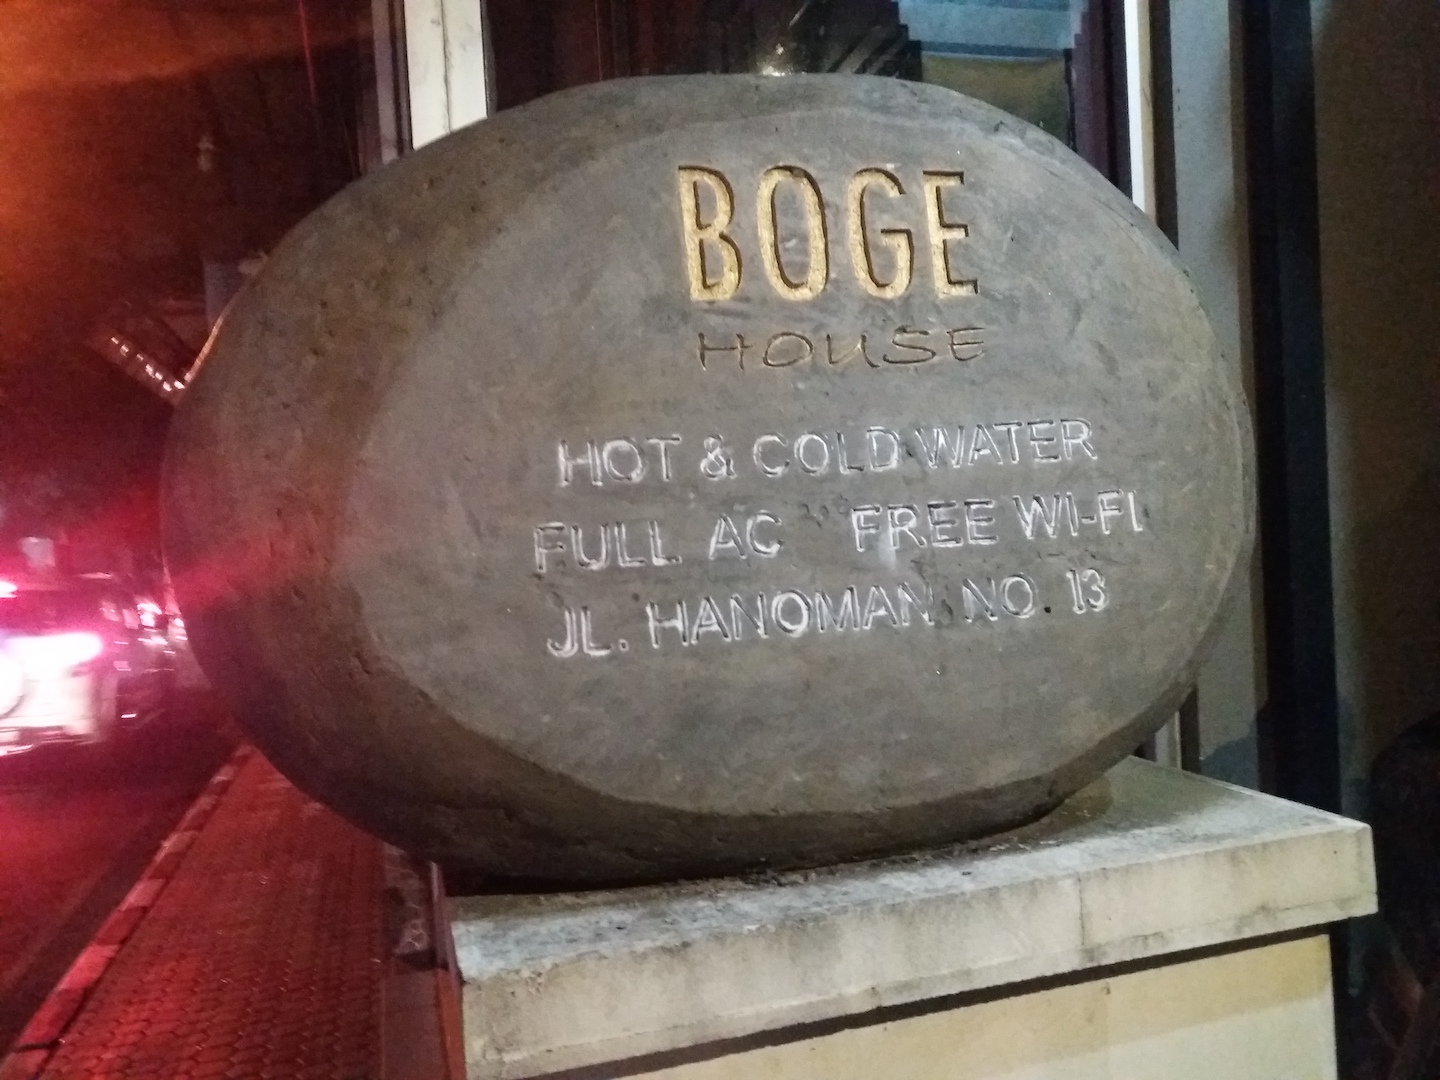 BOGE
HOUSE
HOT & COLD WATER
FULL AC FREE WI-FI
JL. HANOMAN NO. 13